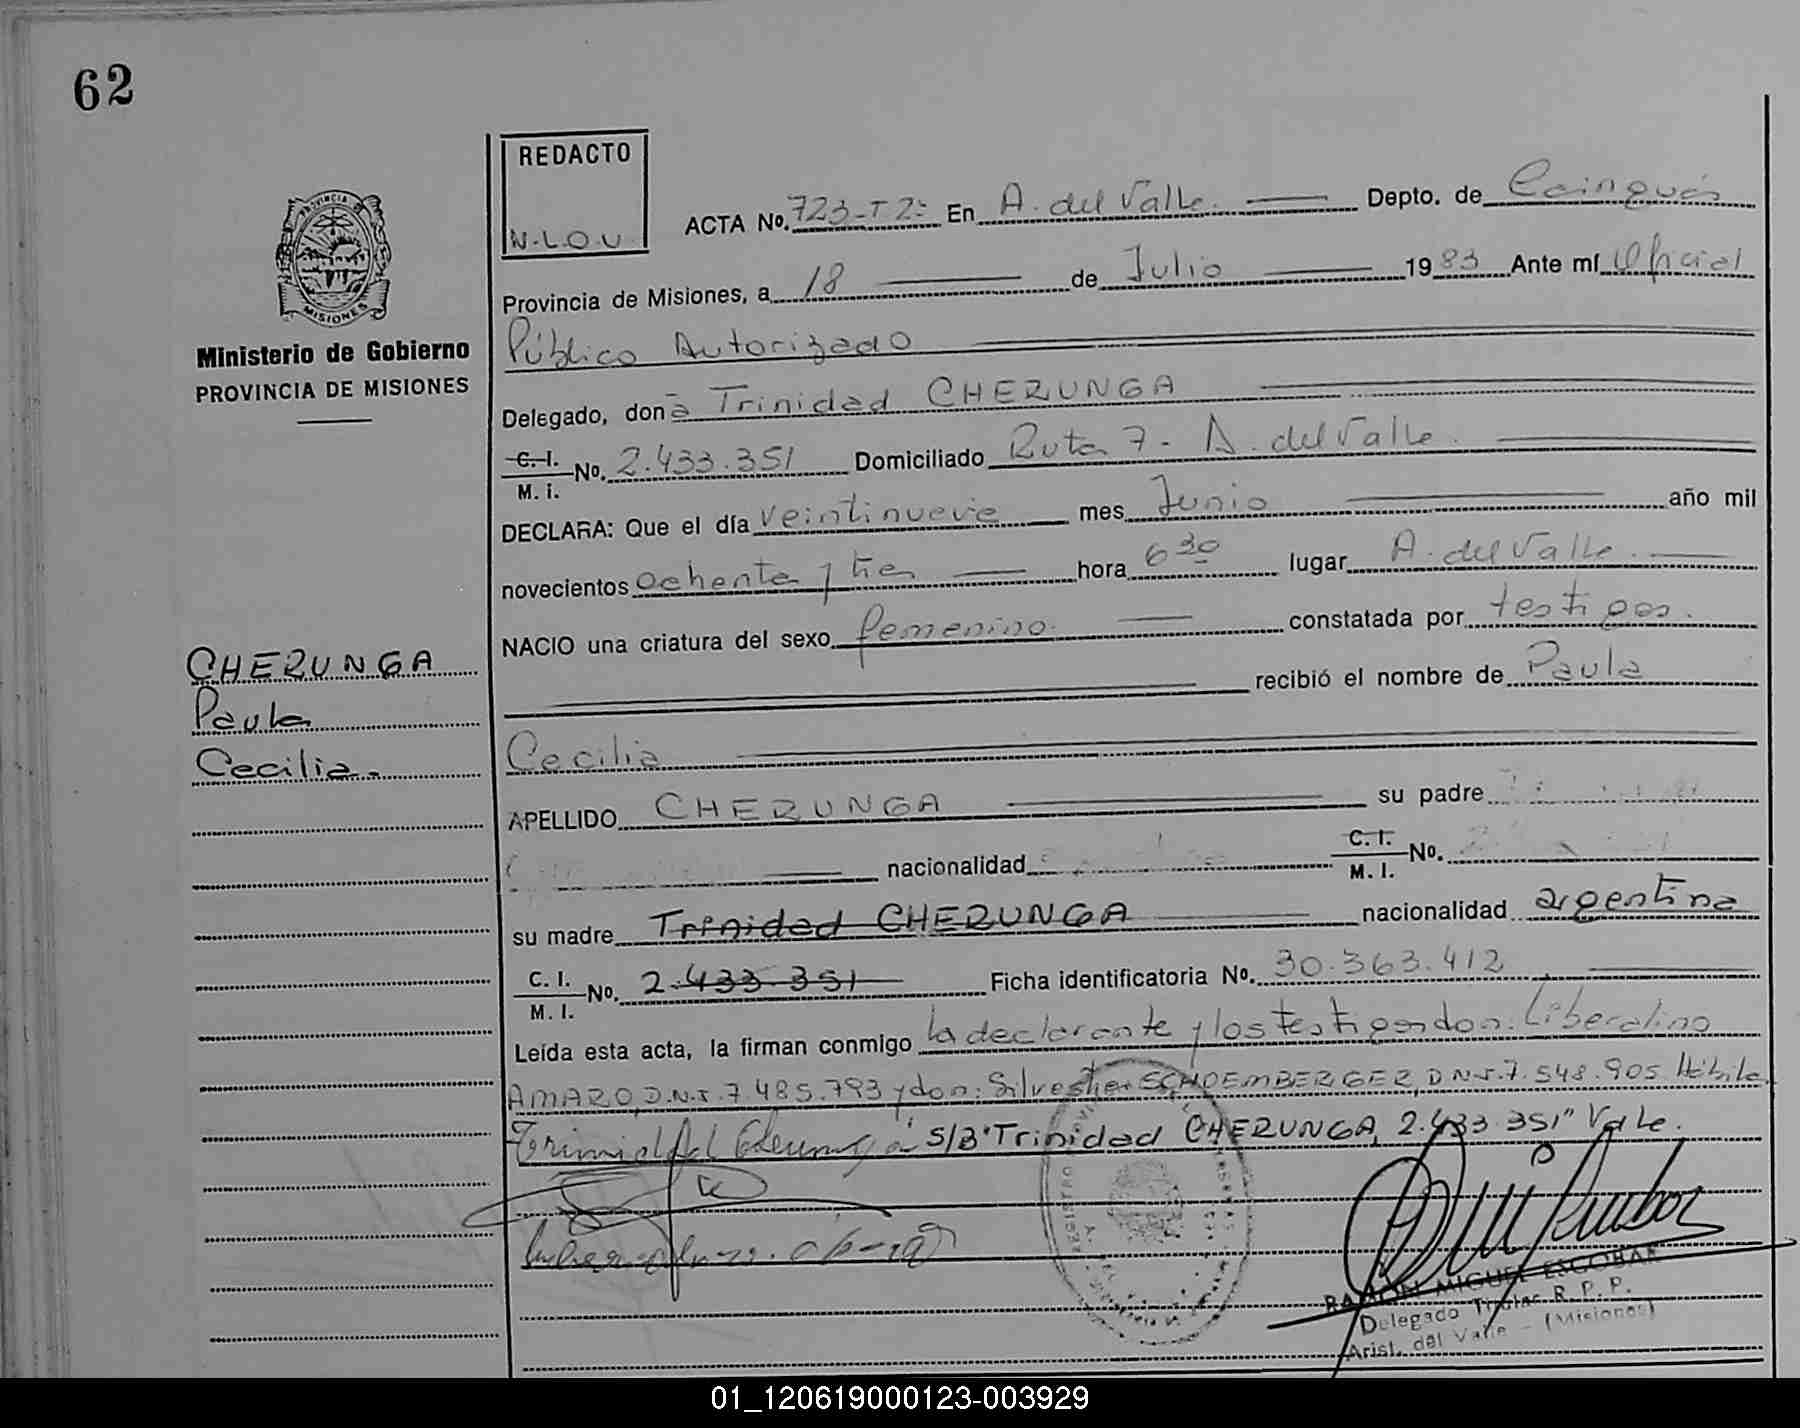 62
REDACTO
N.L.O.U.
ACTA No. 723-T2º En A. del Valle. Depto. de Cainguás
Provincia de Misiones, a 18 de Julio 1983 Ante mí Oficial
Público Autorizado
PROVINCIA DE MISIONES
Ministerio de Gobierno
PROVINCIA DE MISIONES
Delegado, doña Trinidad CHERUNGA
C.I. M. i. No. 2.433.351 Domiciliado Ruta 7 - A. del Valle.
DECLARA: Que el día veintinueve mes Junio año mil
novecientos ochenta y tres hora 6 30 lugar A. del Valle.
NACIO una criatura del sexo femenino. constatada por testigos.
recibió el nombre de Paula
CHERUNGA
Paula
Cecilia.
Cecilia
APELLIDO CHERUNGA su padre
nacionalidad C. I. M. I. No.
su madre Trinidad CHERUNGA nacionalidad argentina
C. I. M. I. No. 2.433.351 Ficha identificatoria No. 30.363.412
Leída esta acta, la firman conmigo la declarante y los testigos don: Liberalino
AMARO, D.N.I. 7.485.793 y don: Silvestre SCHOEMBERGER, D.N.I. 7.548.905. Hábiles
S/B "Trinidad CHERUNGA, 2.433.351" Vale.
RAMON MIGUEL ESCOBAR
Delegado Titular R. P. P.
Arist. del Valle - (Misiones)
01_120619000123-003929